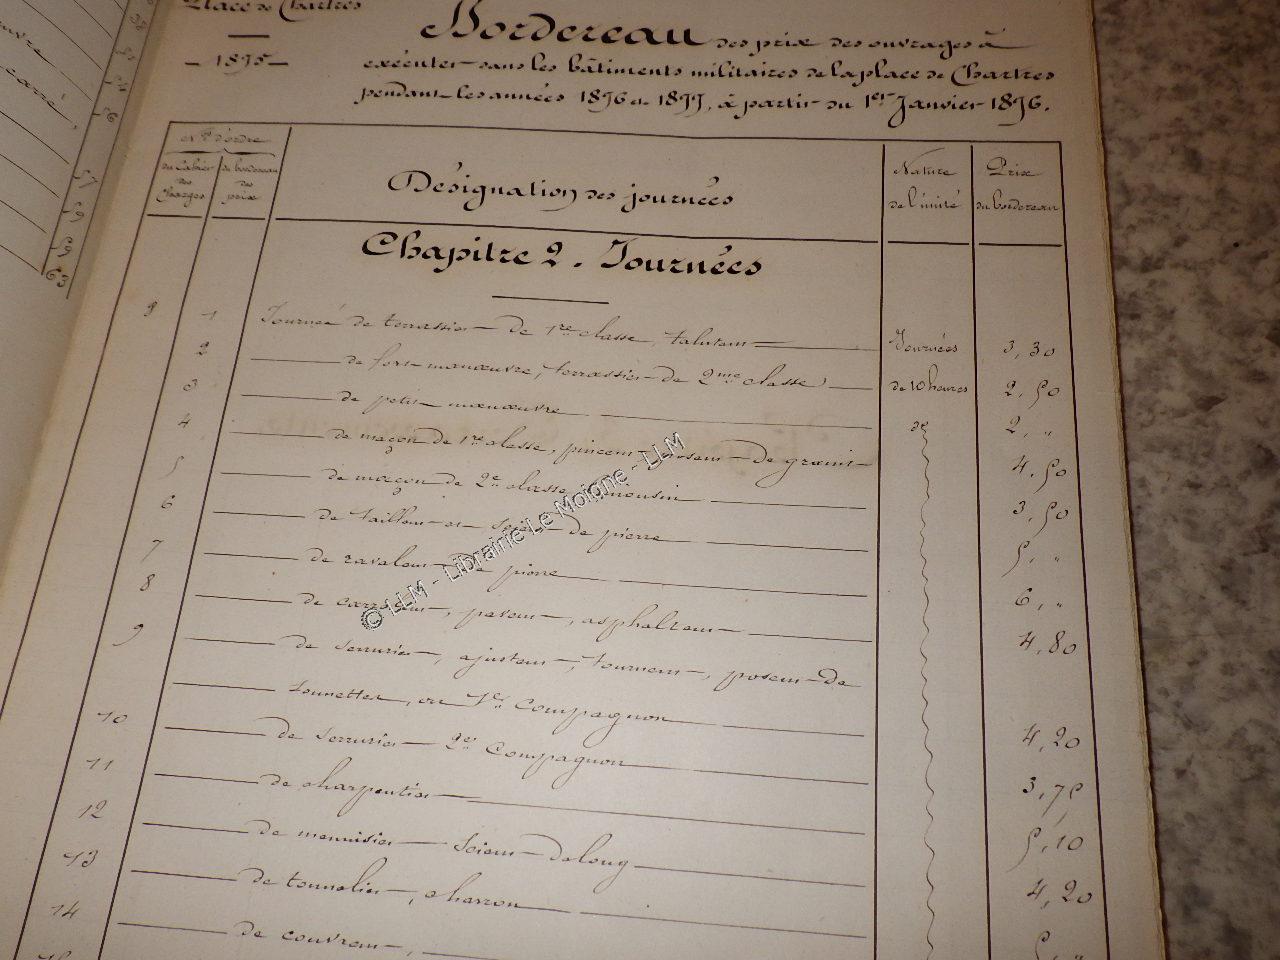 Place de Chartres
1895
Bordereau des prix des ouvrages à
exécuter dans les bâtiments militaires de la place de Chartres
pendant les années 1896 et 1897, à partir du 1er Janvier 1896.
Nos d'ordre
du Cahier des Charges
du bordereau des prix
Désignation des journées
Nature de l'unité
Prix du bordereau
Chapitre 2. Journées
8 1 Journée de terrassier de 1re classe, taluteur Journées 3,30
2 de fort manœuvre, terrassier de 2me classe de 10 heures 2,50
3 de petit manœuvre do 2, "
4 de maçon de 1re classe, pinceur, poseur de granit 4,50
5 de maçon de 2e classe, limousin 3,50
6 de tailleur et scieur de pierre 5, "
7 de ravaleur de pierre 6, "
8 de carreleur, paveur, asphalteur 4,80
9 de serrurier, ajusteur, tourneur, poseur de
sonnettes, ou 1er compagnon 4,20
10 de serrurier 2e compagnon 3,75
11 de charpentier 5,10
12 de menuisier scieur de long 4,20
13 de tonnelier, charron 5, "
14 de couvreur,
© LLM - Librairie Le Moigne - LLM
carré,
57
59
63